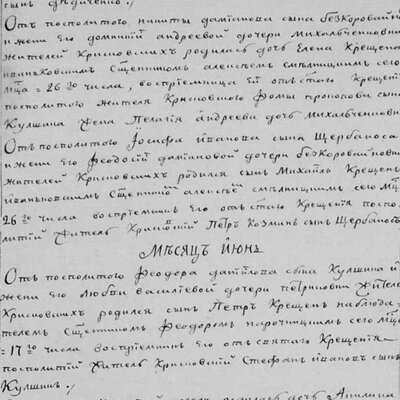 сынъ
Отъ посполитого никиты даміянова сына безкоровайн
и жени его домникіи андреевой дочери михальченковни
жителей Крисковскихъ родилась дочь Елена Крещена
Сщенникомъ алексѣемъ смѣлницкимъ сего
мца = 26 го числа, воспріемница ей отъ стаго Крещенія
посполитого жителя Крисковского Фомы прокопова сына
Кулшина жена Пелагія андреева дочь михальченкова
Отъ посполитого Іосифа иванова сына Щербаноса
и жени его Феодосіи даміановой дочери безкоровайновни
жителей Крисковскихъ родился сынъ Михайлъ Крещенъ
Сщенникомъ алексѣемъ смѣлницкимъ сего мца
26 го числа воспріемникъ его отъ стаго Крещенія поспо
литій житель Крисковскій Петръ Козминъ сынъ Щербаносъ
Мѣсяцъ Июнъ
Отъ посполитого Феодора данійлова сына Кулшина и
жени его Любви василіевой дочери жителей
Крисковскихъ родился сынъ Петръ Крещенъ наблюда
телемъ Сщенникомъ Феодоромъ сего мца
= 17 го числа воспріемникъ его отъ святаго Крещенія
посполитій житель Крисковскій Стефанъ ивановъ сынъ
Кулшинъ
дочь